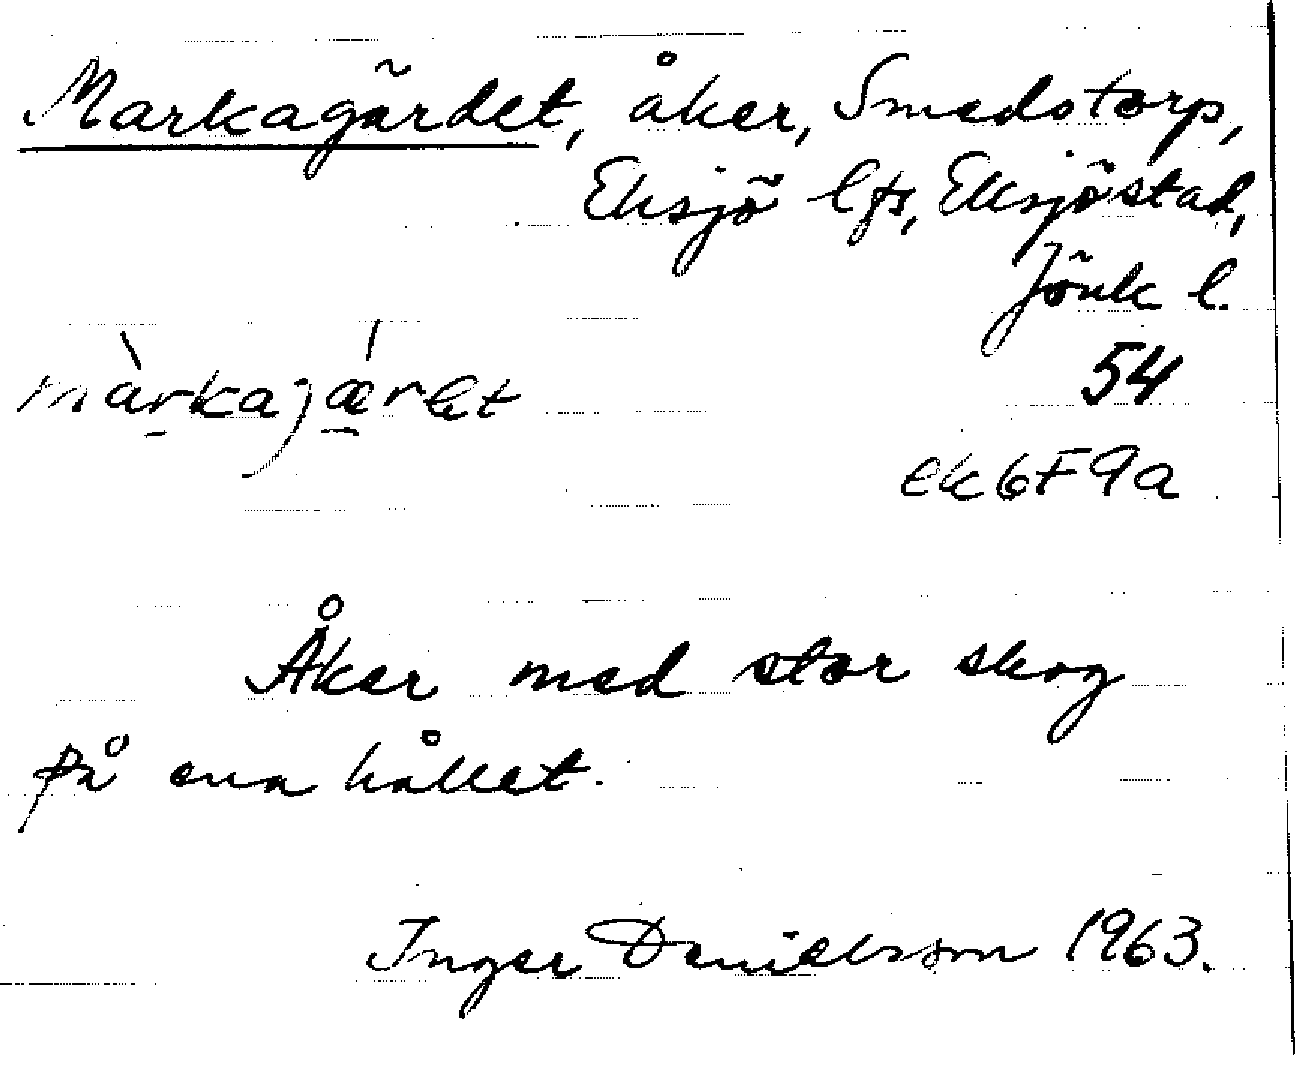 Markagärdet, åker, Smedstorp,
Eksjö lfs, Eksjö stad,
Jönk l.
màrkajǽret
54
ek 6F9a
Åker med stor skog
på ena hållet.
Inger Danielsson 1963.